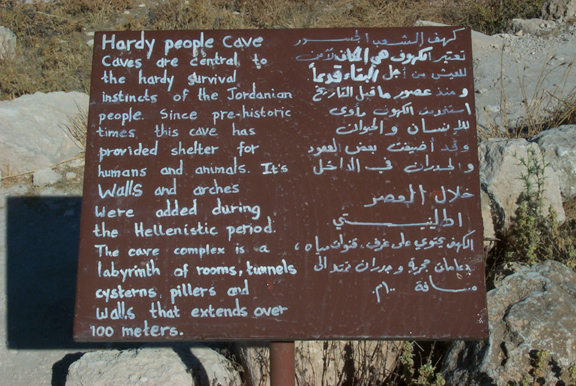 Hardy people Cave
Caves are central to
the hardy survival
instincts of the Jordanian
people. Since pre-historic
times, this cave has
provided shelter for
humans and animals. It's
Walls and arches
Were added during
the Hellenistic period.
The cave complex is a
labyrinth of rooms, tunnels
cysterns, pillers and
Walls that extends over
100 meters.
كهف الشعب الجسور
تعتبر الكهوف هي المكان
للعيش من أجل البقاء قدماً
ومنذ عصور ما قبل التاريخ
استخدمت الكهوف مأوى
للإنسان والحيوان
وقد أضيفت بعض العقود
والجدران في الداخل
خلال العصر
الكهف يحتوي على غرف، قنوات مياه،
حجرية وجدران تمتد الى
مسافة ١٠٠م.